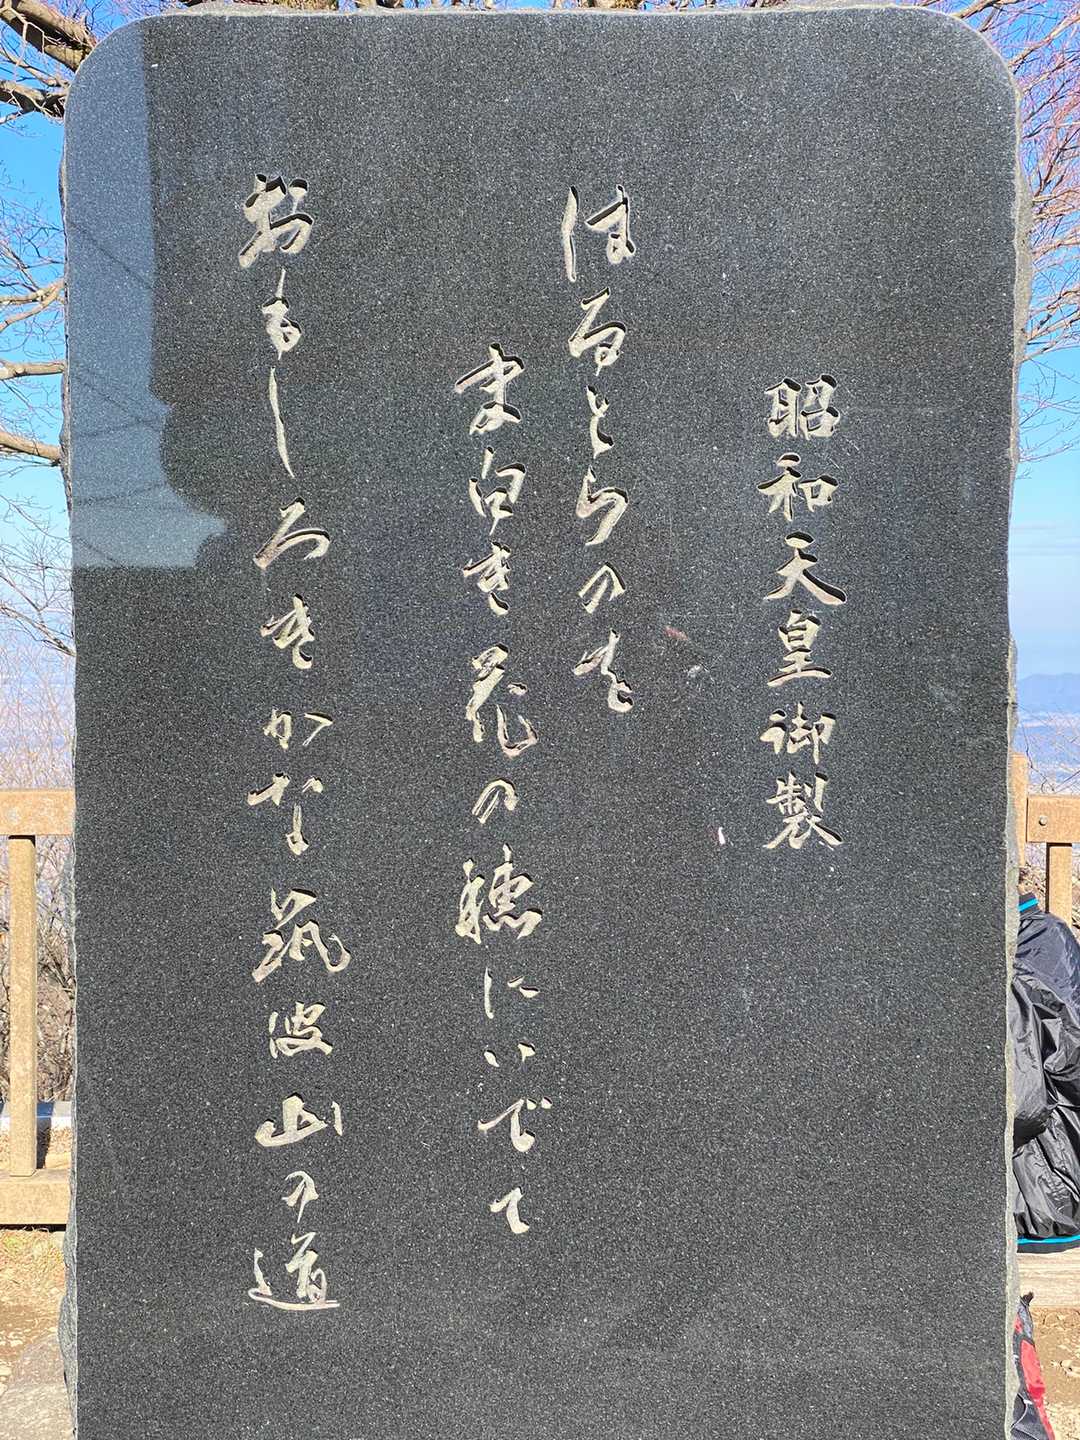 昭和天皇御製
はるとらのを
ま白き花の穂にいでて
おもしろきかな筑波山の道